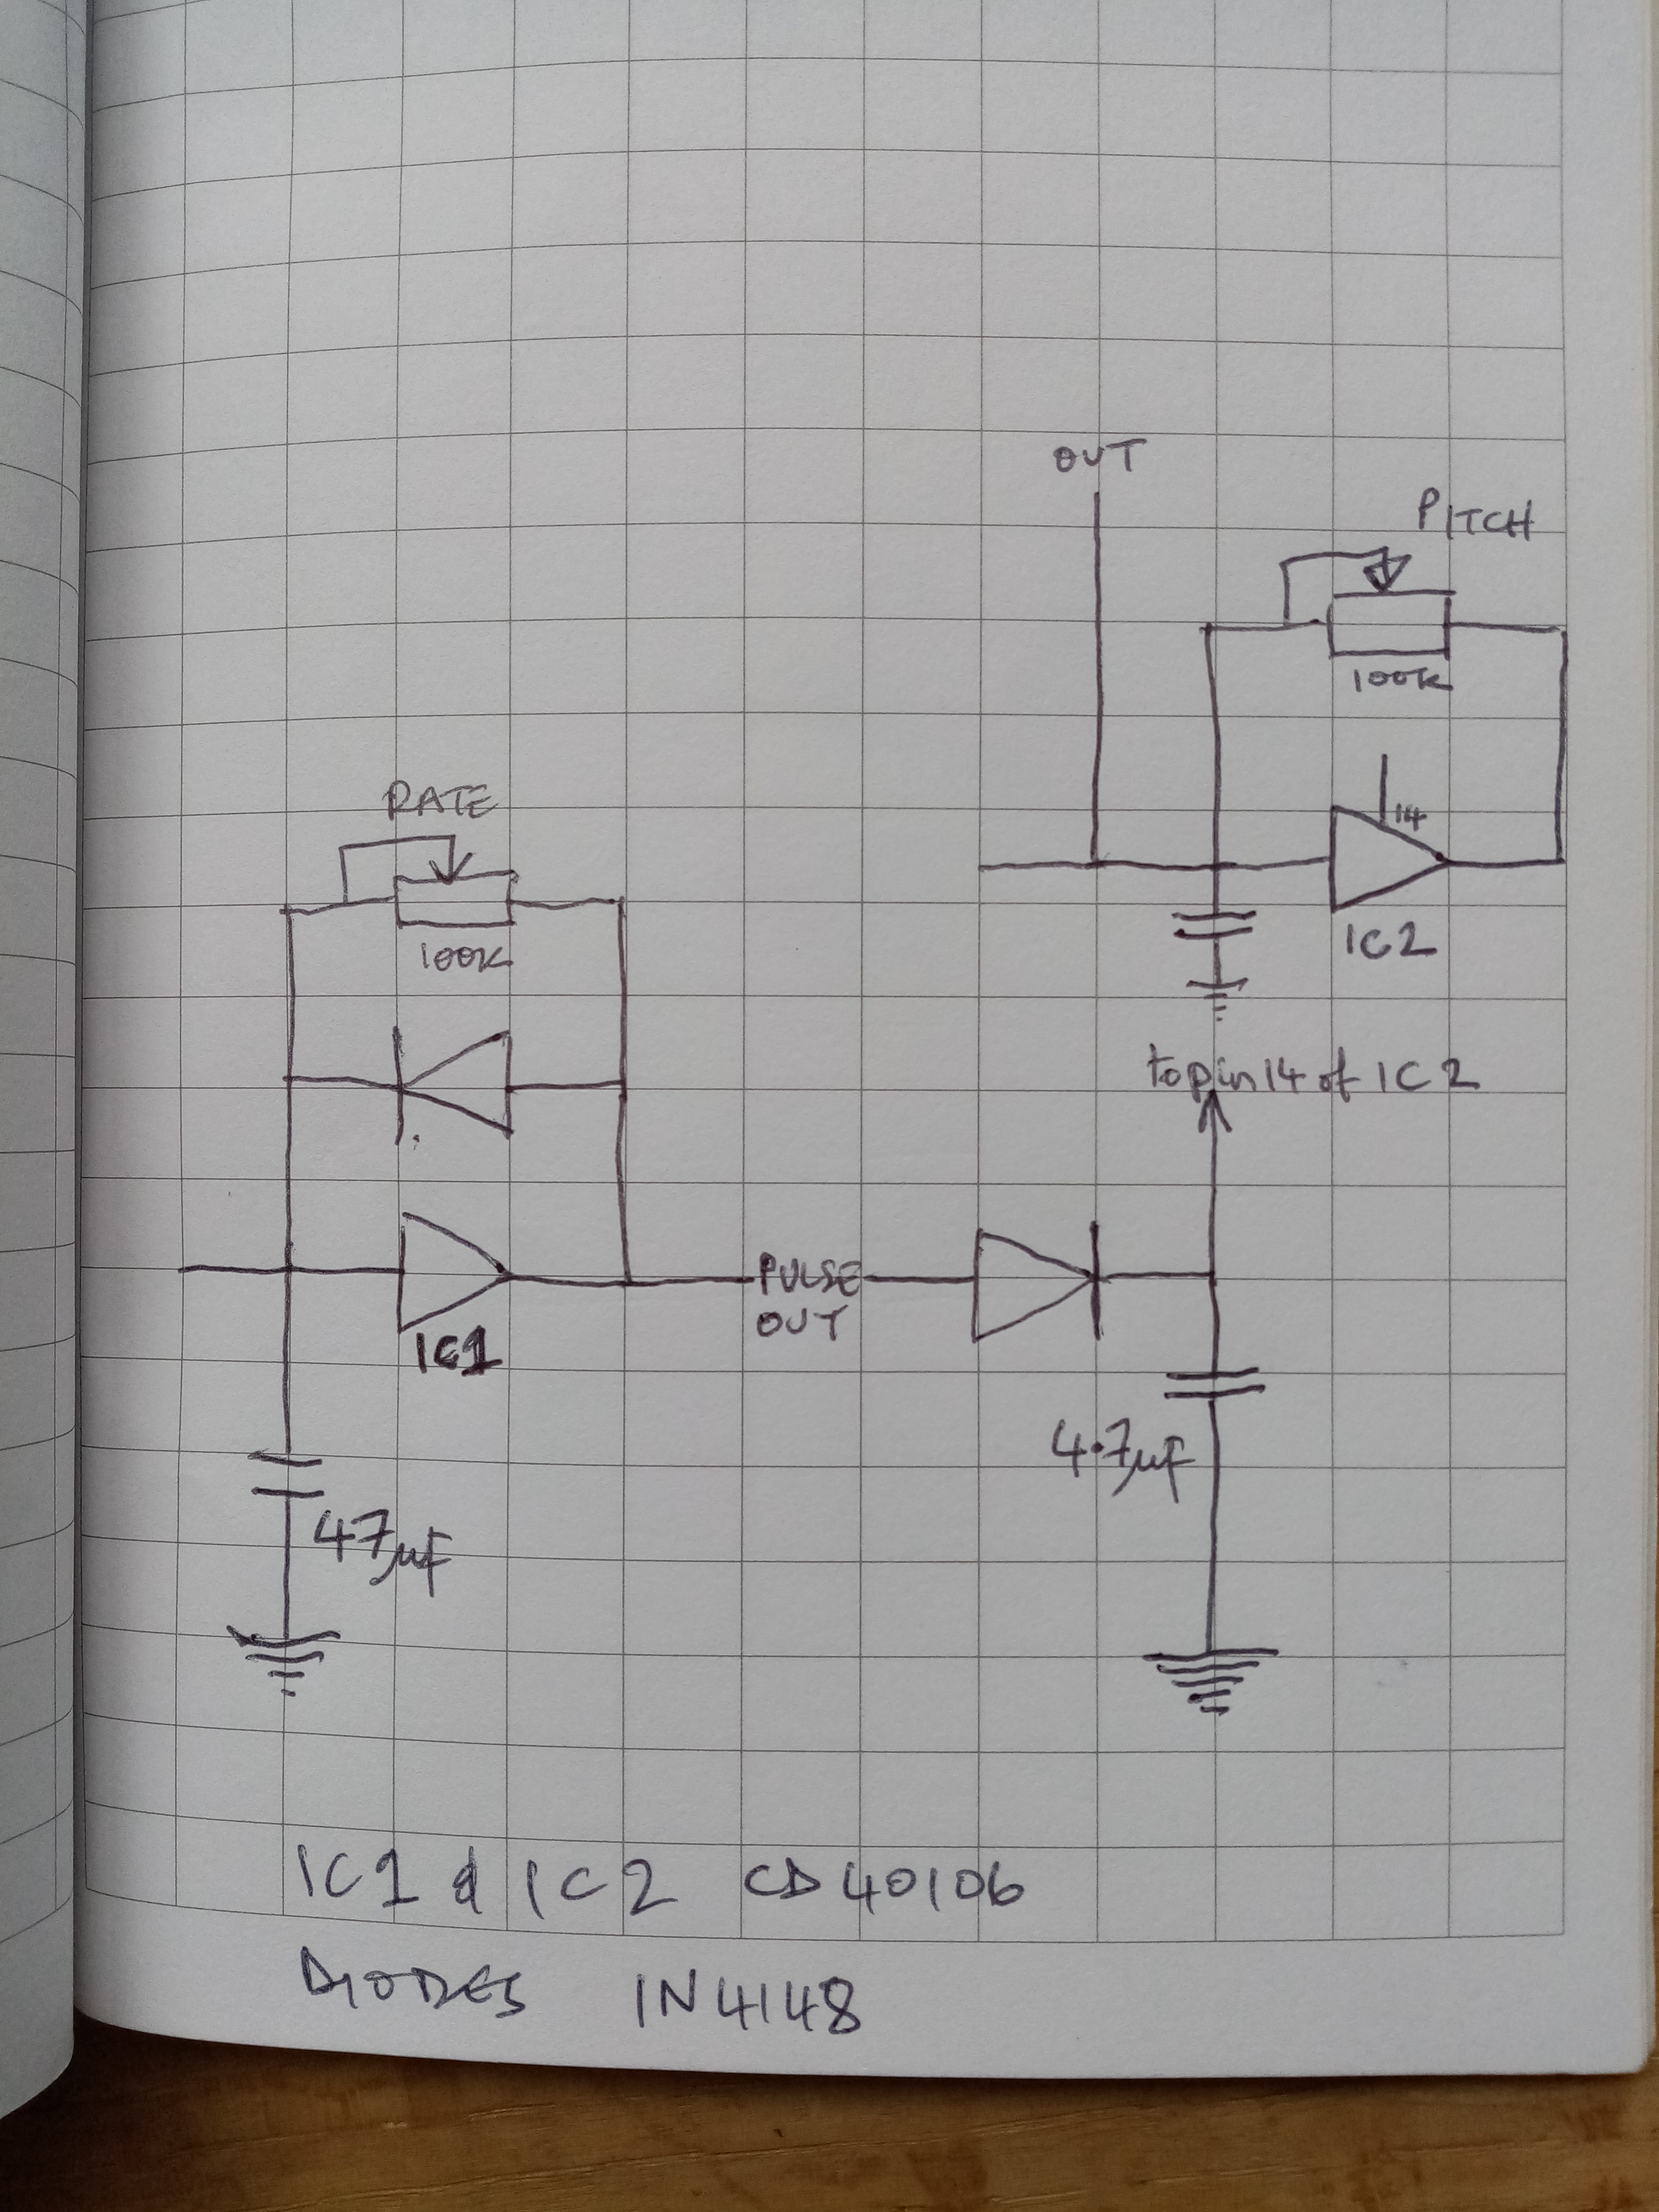 OUT
PITCH
100K
14
IC2
RATE
100K
to pin 14 of IC2
PULSE
OUT
IC1
4.7µF
47µF
IC1 & IC2 CD40106
DIODES 1N4148